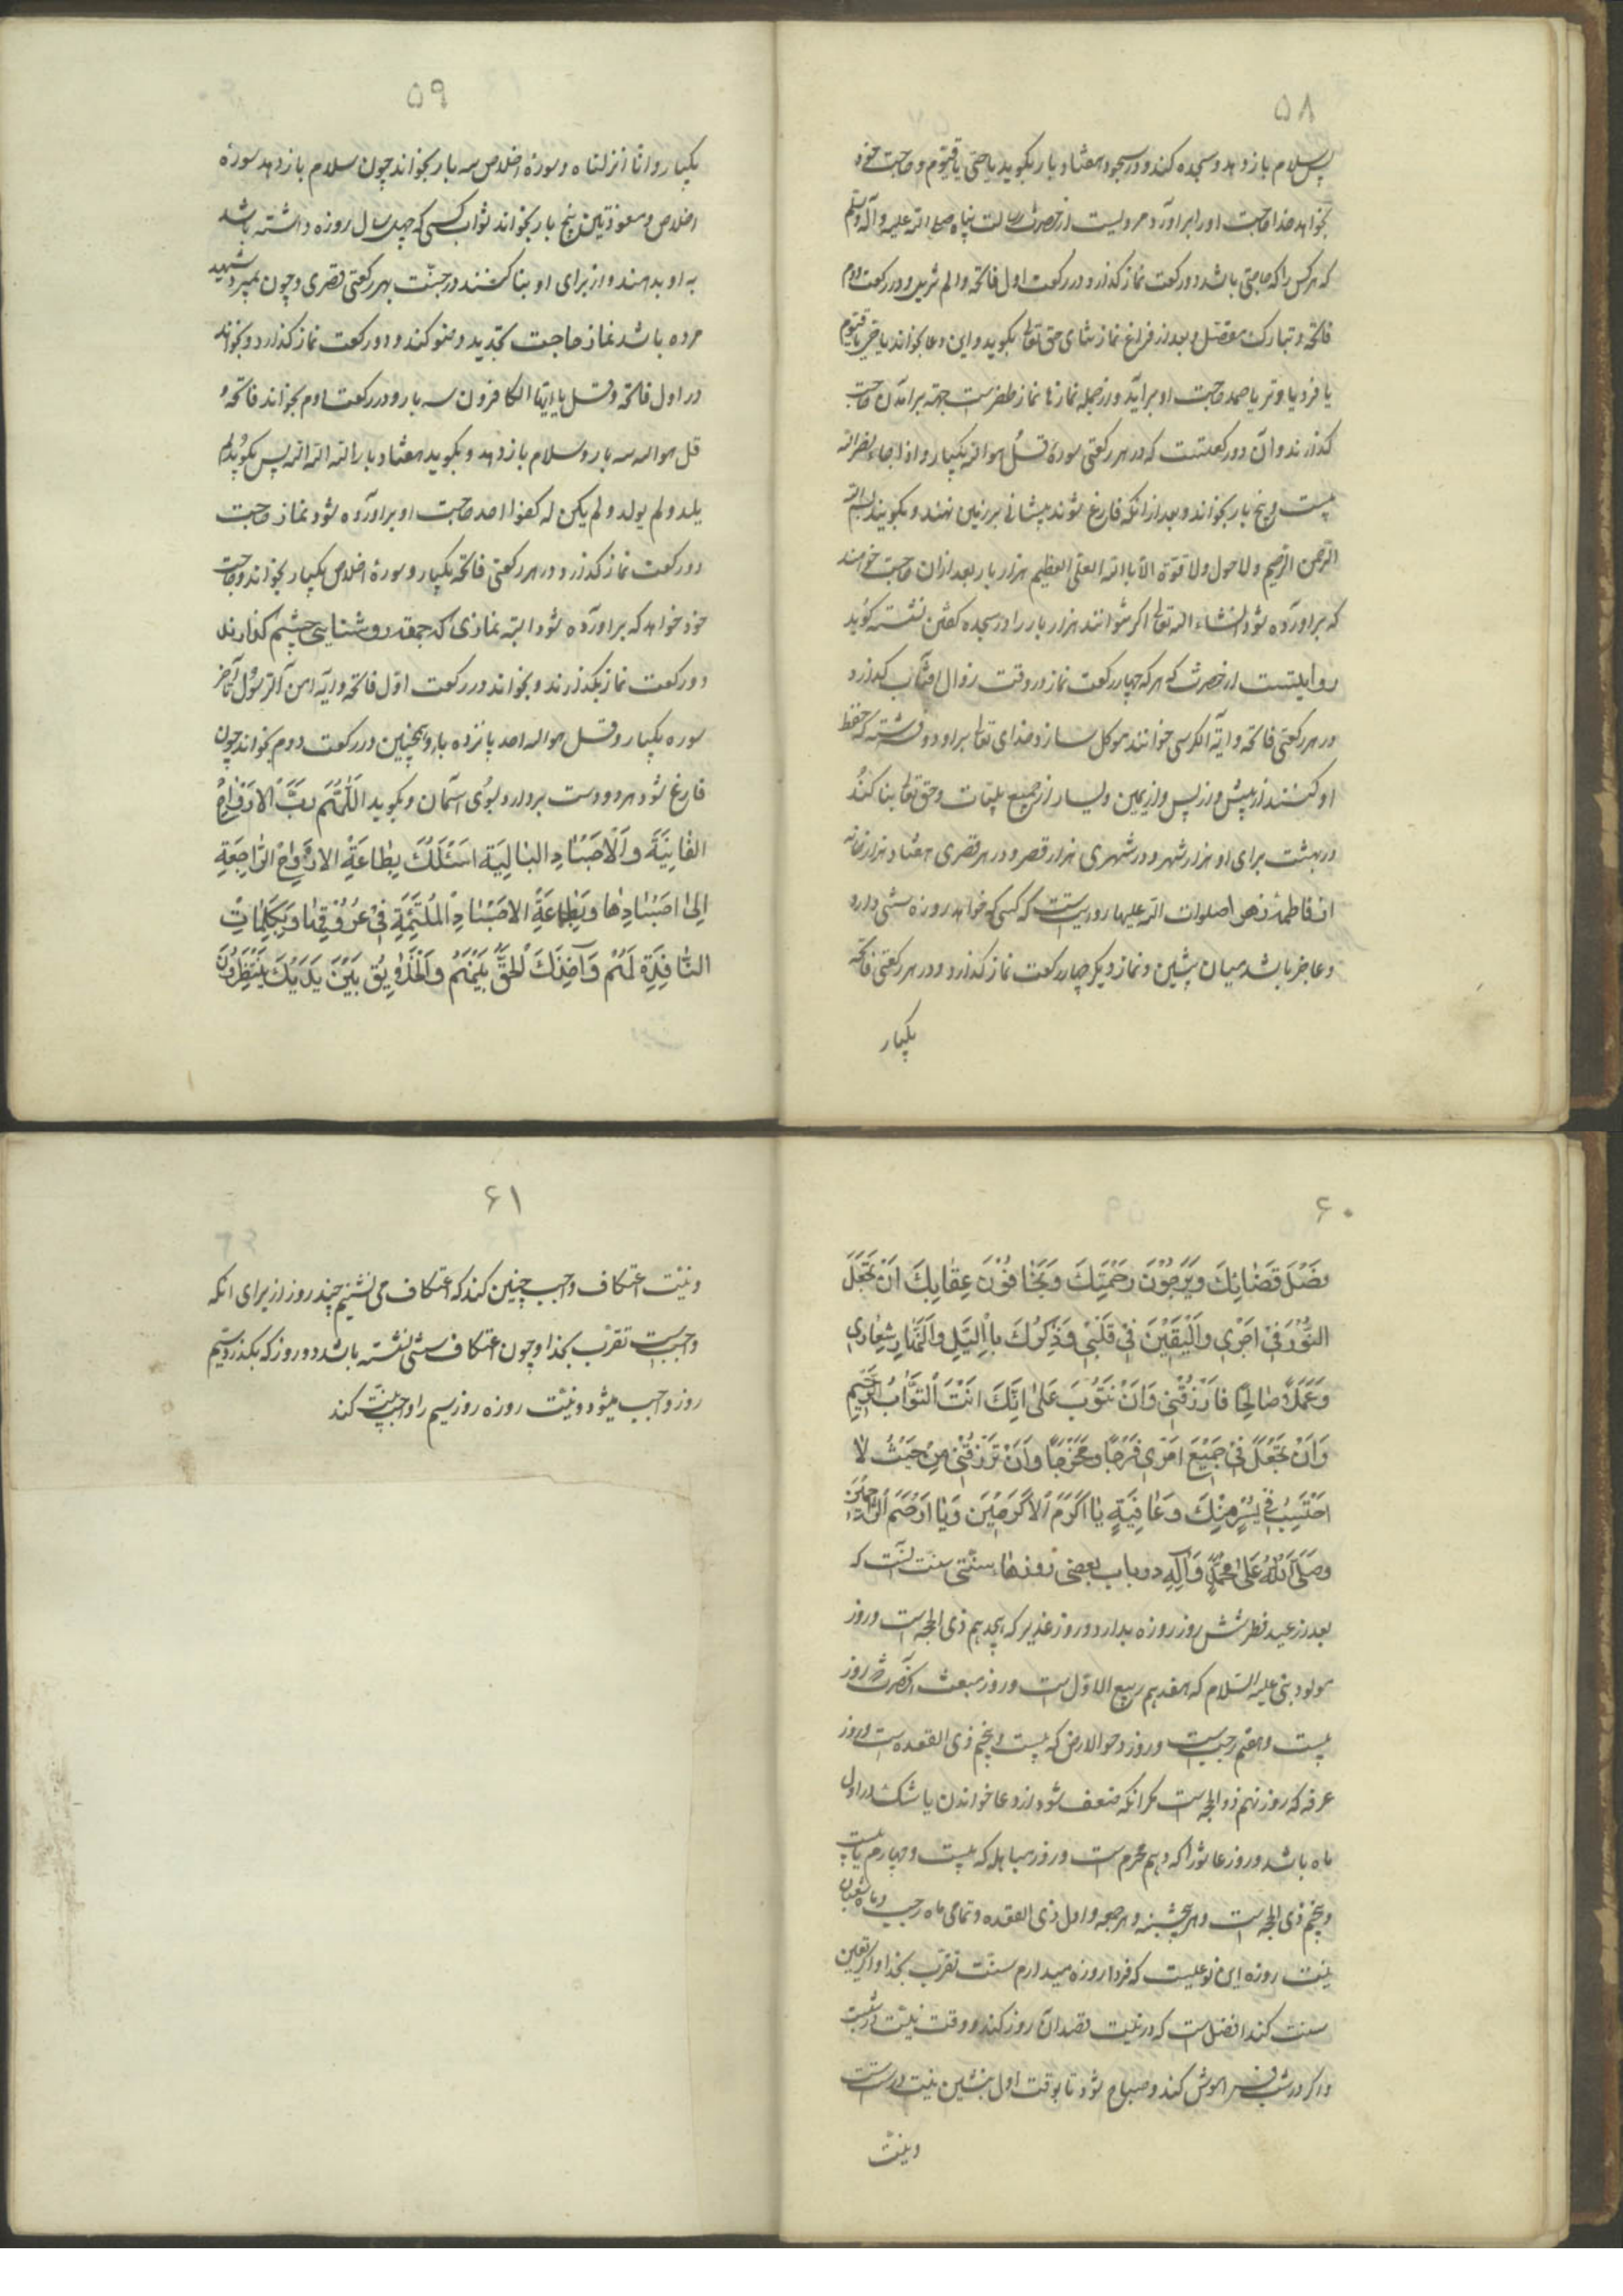 ۵۸
پس سلام باز دهد و سجده کند و در سجود هفتاد بار بگوید یا حی یا قیوم و حاجت خود
بخواهد خدا حاجت او را برآورد و مرویست از حضرت رسالت پناه صلی الله علیه و آله وسلم
که هر کس را که حاجتی باشد دو رکعت نماز گذارد و در رکعت اول فاتحه و الم تنزیل و در رکعت دوم
فاتحه و تبارک مفصل و بعد از فراغ نماز ثنای حق تعا بگوید و این دعا بخواند یا حی یا قیوم
یا فرد یا وتر یا صمد حاجت او برآید و از جمله نمازها نماز ظفرست جهة برآمدن حاجت
گذرند و آن دو رکعتست که در هر رکعتی سورة قل هو الله یکبار و اذا جاء نصر الله
بیست و پنج بار بخواند و بعد از آنکه فارغ شوند پیشانی بر زمین نهند و بگویند بسم الله
الرحمن الرحیم و لا حول ولا قوة الا بالله العلی العظیم هزار بار بعد از آن حاجت خواهند
که برآورده شود انشاء الله تعا اگر نتوانند هزار بار را در سجده گفتن نشسته گوید
روایتست از حضرت که هر که چهار رکعت نماز در وقت زوال آفتاب گذارد
در هر رکعتی فاتحه و آیة الکرسی خوانند موکل سازد خدای تعا بر او دو فرشته که حفظ
او کنند از پیش و از پس و از یمین و یسار از جمیع بلیات و حق تعا بنا کند
در بهشت برای او هزار شهر و در شهری هزار قصر و در هر قصری هفتاد هزار خانه
از فاطمه زهرا صلوات الله علیها روایتست که کسی که خواهد روزه سنتی دارد
و عاجز باشد میان پشین و نماز دیگر چهار رکعت نماز گذارد و در هر رکعتی فاتحه
یکبار
۵۹
یکبار و انا انزلناه و سورة اخلاص سه بار بخواند چون سلام باز دهد سورة
اخلاص و معوذتین پنج بار بخواند ثواب کسی که چهل سال روزه داشته باشد
به او بدهند و از برای او بنا کنند در جنت بهر رکعتی قصری و چون بمیرد شهید
مرده باشد نماز حاجت تجدید وضو کند و دو رکعت نماز گذارد و بخواند
در اول فاتحه و قل یا ایها الکافرون سه بار و در رکعت دوم بخواند فاتحه و
قل هو الله سه بار و سلام باز دهد و بگوید هفتاد بار الله الله الله پس بگوید لم
یلد ولم یولد ولم یکن له کفوا احد حاجت او برآورده شود نماز حاجت
دو رکعت نماز گذرد و در هر رکعتی فاتحه یکبار و سورة اخلاص یکبار بخواند و حاجت
خود خواهد که برآورده شود البته نمازی که جهة روشنایی چشم گذارند
دو رکعت نماز بگذرند و بخواند در رکعت اول فاتحه و آیه امن الرسول تا آخر
سوره یکبار و قل هو الله احد پانزده بار و همچنین در رکعت دوم بخواند چون
فارغ شود هر دو دست بردارد بسوی آسمان و بگوید اللهم رب الارواح
الفانیة و الاجساد البالیة اسئلک بطاعة الارواح الراجعة
الی اجسادها و بطاعة الاجساد الملتئمة فی عروقها و بکلمات
النافذة لهم و آخذک الحق بینهم و الخلایق بین یدیک ینتظرون
۶۰
فضل قضائک و یرجون رحمتک و یخافون عقابک ان تجعل
النور فی و الیقین فی قلبی و ذکرک باللیل و النهار شعاری
و عملا صالحا فارزقنی و ان تتوب علی انک انت التواب الرحیم
و ان تجعل فی جمیع امری فرجا و مخرجا و ان ترزقنی من حیث لا
احتسب فی یسر منک و عافیة یا اکرم الاکرمین و یا ارحم الراحمین
و صلی الله علی محمد و آله در باب بعضی روزهاء سنتی سنتست که
بعد از عید فطر شش روز روزه بدارد و روز غدیر که هجدهم ذی الحجه است و روز
مولود نبی علیه السلام که هفدهم ربیع الاول است و روز مبعث آنحضرت روز
بیست و هفتم رجبست و روز دحو الارض که بیست و پنجم ذی القعده است و روز
عرفه که روز نهم ذو الحجه است مگر آنکه ضعف شود از دعا خواندن یا شک در اول
ماه باشد و روز عاشورا که دهم محرم است و روز مباهله که بیست و چهارم یا بیست
و پنجم ذی الحجه است و هر پنجشنبه و هر جمعه و اول ذی القعده و تمامی ماه رجب و ماه شعبان
نیت روزه این نوعیست که فردا روزه میدارم سنت تقرب بخدا و اگر تعین
سنت کند افضل است که در نیت قصد آن روز کند و وقت نیت در شبست
و اگر در شب فراموش کند و صباح شود تا بوقت اول پشین نیت درستست
و نیت
۶۱
و نیت اعتکاف واجب چنین کند که اعتکاف می نشینم چند روز از برای آنکه
واجبست تقرب بخدا و چون اعتکاف سنتی نشسته باشد دو روز که بگذرد سیم
روز واجب میشود و نیت روزه روز سیم را واجب نیت کند